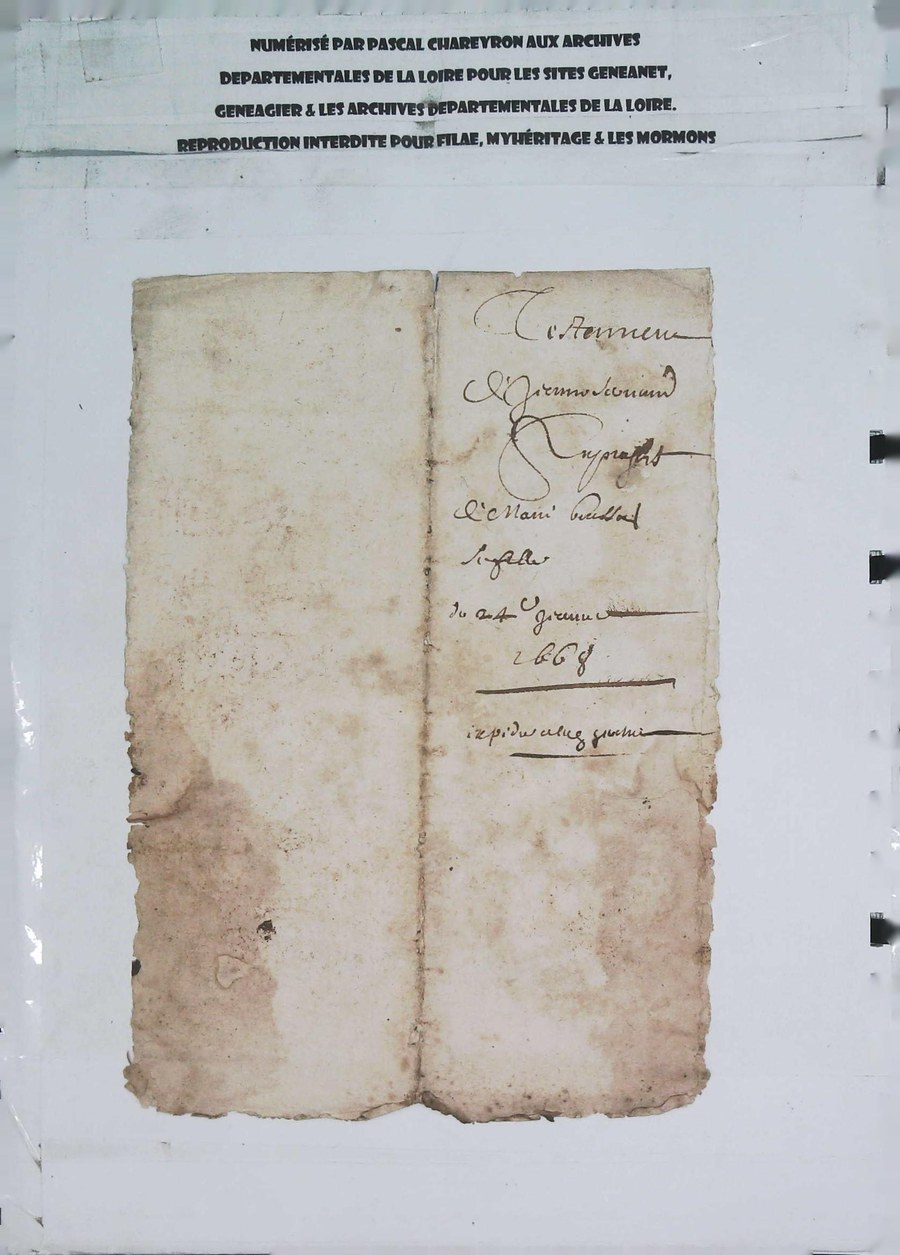 NUMÉRISÉ PAR PASCAL CHAREYRON AUX ARCHIVES
DEPARTEMENTALES DE LA LOIRE POUR LES SITES GENEANET,
GENEAGIER & LES ARCHIVES DEPARTEMENTALES DE LA LOIRE.
REPRODUCTION INTERDITE POUR FILAE, MYHÉRITAGE & LES MORMONS
Testament
de
au proffit
de Marie
sa fille
du 24e
1668